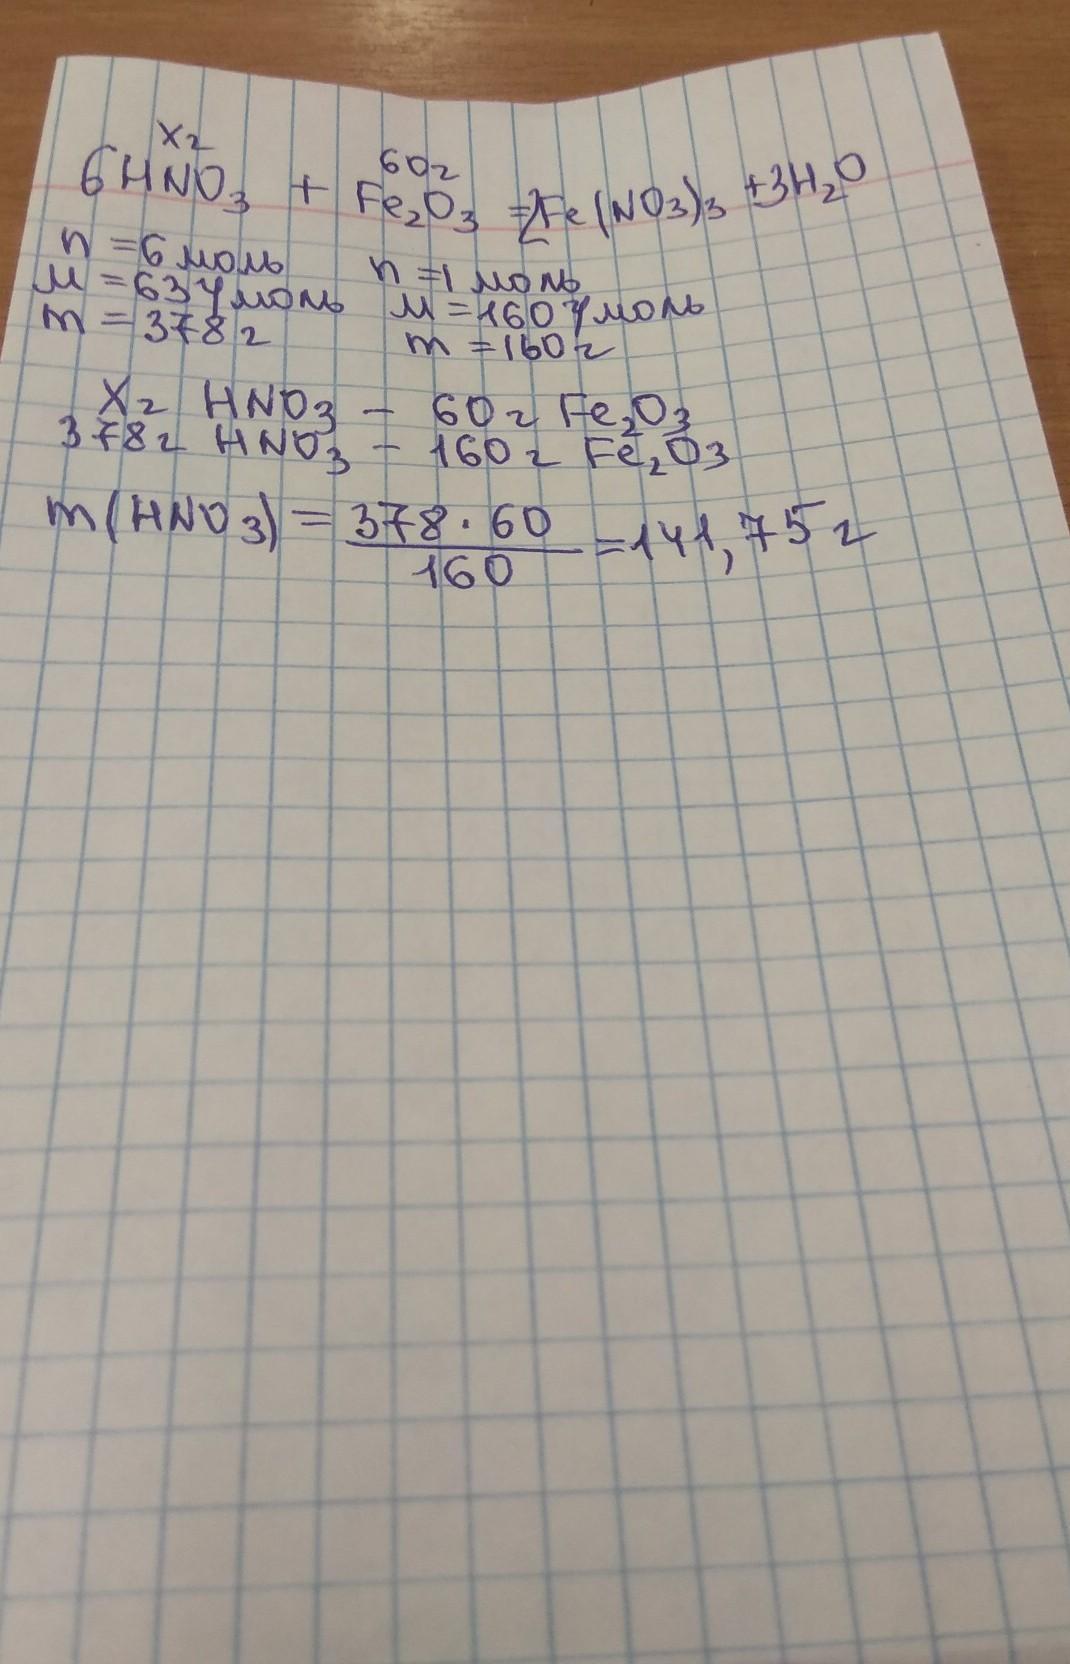 xг 60г
6HNO3 + Fe2O3 = 2Fe(NO3)3 + 3H2O
n = 6 моль n = 1 моль
M = 63 г/моль M = 160 г/моль
m = 378 г m = 160 г
Xг HNO3 - 60г Fe2O3
378г HNO3 - 160г Fe2O3
m(HNO3) = 378 · 60 = 141,75 г
160